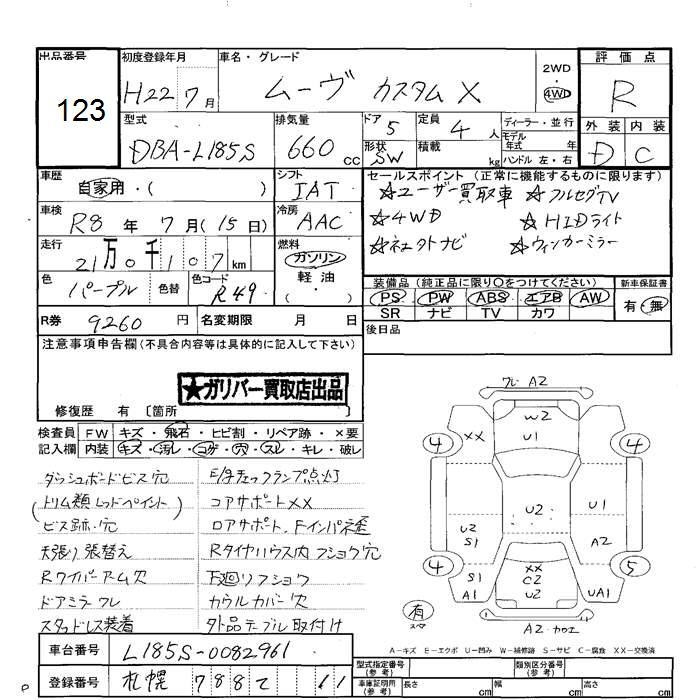 出品番号 初度登録年月 車名・グレード 評価点
123
H22 7月 ムーヴ カスタムX 2WD 4WD R
型式 排気量 ドア 5 定員 4人 ディーラー・並行 外装 内装
DBA-L185S 660cc 形状 SW 積載 kg モデル年式 年 ハンドル 左・右 D C
車歴 自家用・( ) シフト IAT セールスポイント(正常に機能するものに限ります)
☆ユーザー買取車 ☆フルセグTV
車検 R8年 7月(15日) 冷房 AAC
☆4WD ☆HIDライト
走行 21万0千107km 燃料 ガソリン 軽油 ・( )
☆ネェクトナビ ☆ウィンカーミラー
色 パープル 色替 色コード R49
装備品(純正品に限り○をつけてください) 新車保証書
PS PW ABS エアB AW 有・無
SR ナビ TV カワ
R券 9260円 名変期限 月 日
後日品
注意事項申告欄(不具合内容等は具体的に記入して下さい)
★ガリバー買取店出品
修復歴 有 [箇所 ]
検査員 FW キズ・飛石・ヒビ割・リペア跡・×要
記入欄 内装 キズ・汚レ・コゲ・穴・スレ・キレ・破レ
ダッシュボードビス穴
(トリム類レッドペイント)
ビス跡・穴
天張り張替え
Rワイパーアーム欠
ドアミラーワレ
スタッドレス装着
E/gチェックランプ点灯
コアサポートXX
ロアサポート、Fインパネ歪
Rタイヤハウス内フショウ穴
下廻リフショウ
カウルカバー欠
外品テーブル取付け
ワレ A2
W2
U1
XX
4
4
U2
U1
U2
S1
A2
4
5
XX
C2
U2
S1
A1
UA1
有
スペア
A2・カロエ
A-キズ E-エクボ U-凹み W-補修跡 S-サビ C-腐食 XX-交換済
車台番号 L185S-0082961
登録番号 札幌 788 て 11
型式指定番号(参考) 類別区分番号(参考)
車庫証明用(参考) 長さ cm 幅 cm 高さ cm
P